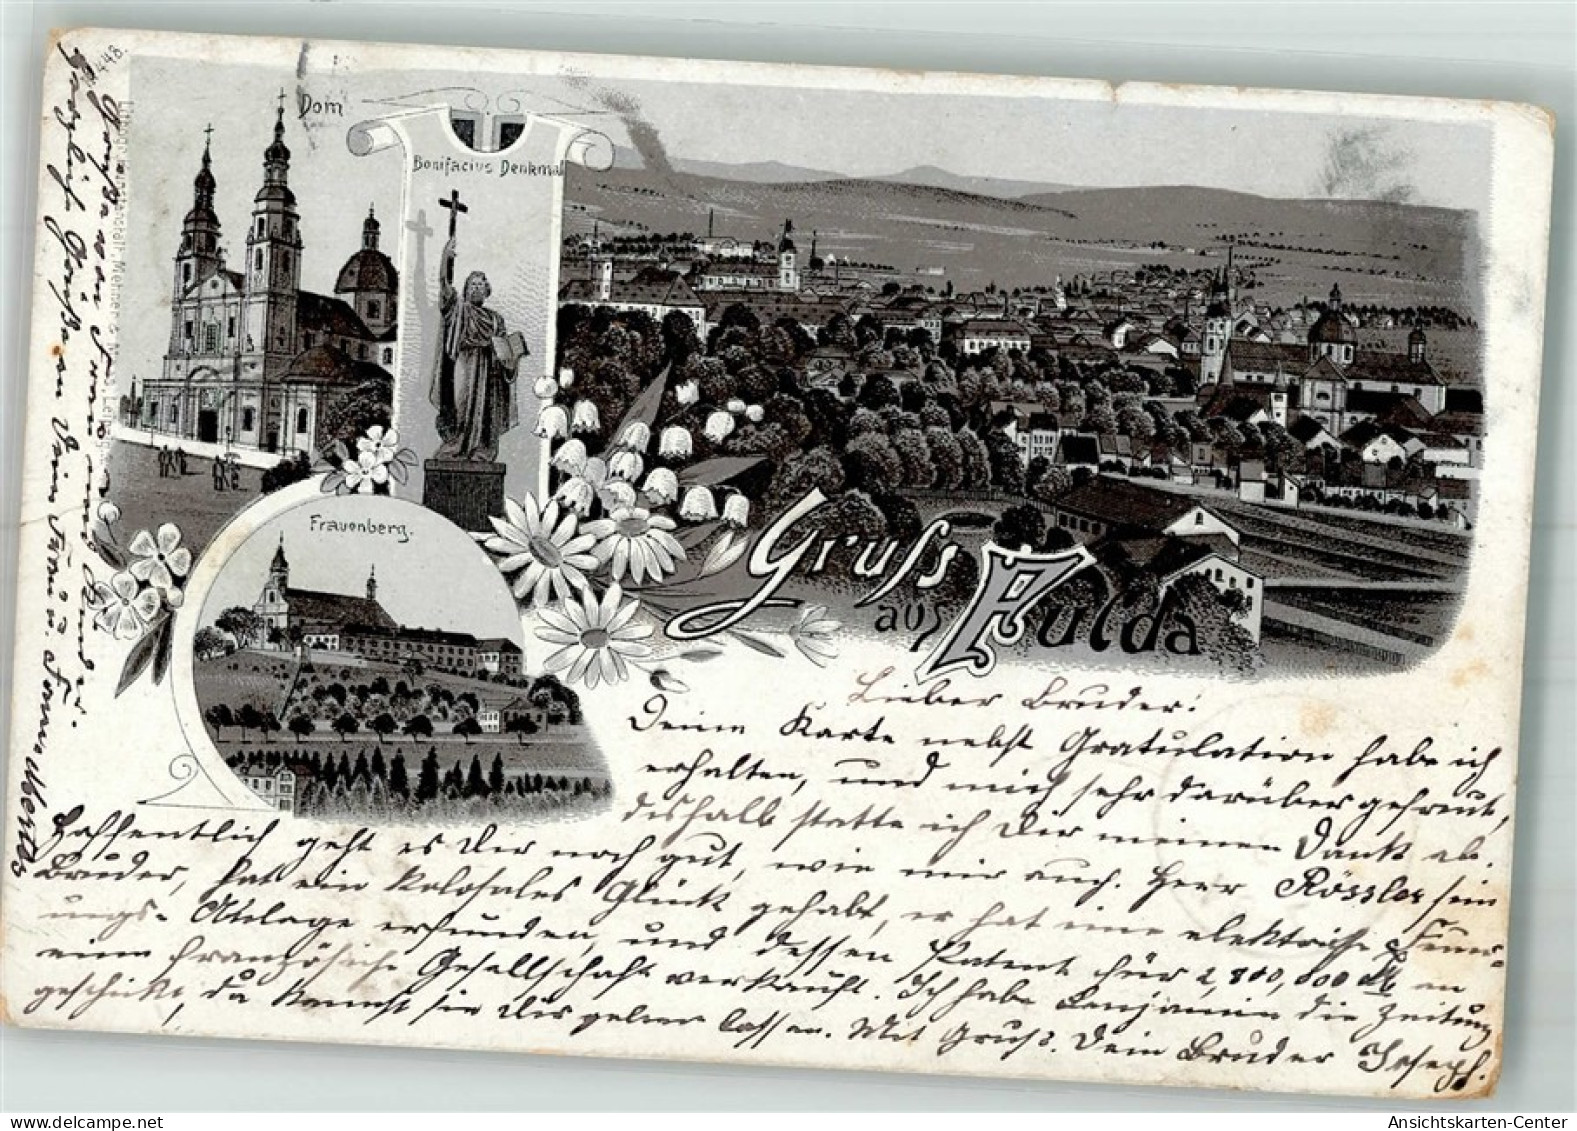 448.
Dom
Bonifacius Denkmal
Frauenberg.
Gruss
aus Fulda
Lieber Bruder!
Deine Karte nebst Gratulation habe ich
erhalten, und mich sehr darüber gefreut,
deshalb statte ich Dir meinen Dank ab.
Hoffentlich geht es Dir noch gut, wie mir auch. Herr Rössler sein
Bruder, hat ein kolosales Glück gehabt, er hat eine elektrische Feuer-
ungs-Anlage erfunden, und dessen Patent für 2,800,000 M an
eine französische Gesellschaft verkauft. Ich habe Benjamin die Zeitung
geschickt, da kannst sie Dir geben lassen. Mit Gruß. Dein Bruder Joseph.
Herzlich Grüße an Deine Frau u.
Grüße von Frau und Kinder.
Ansichtskarten-Center